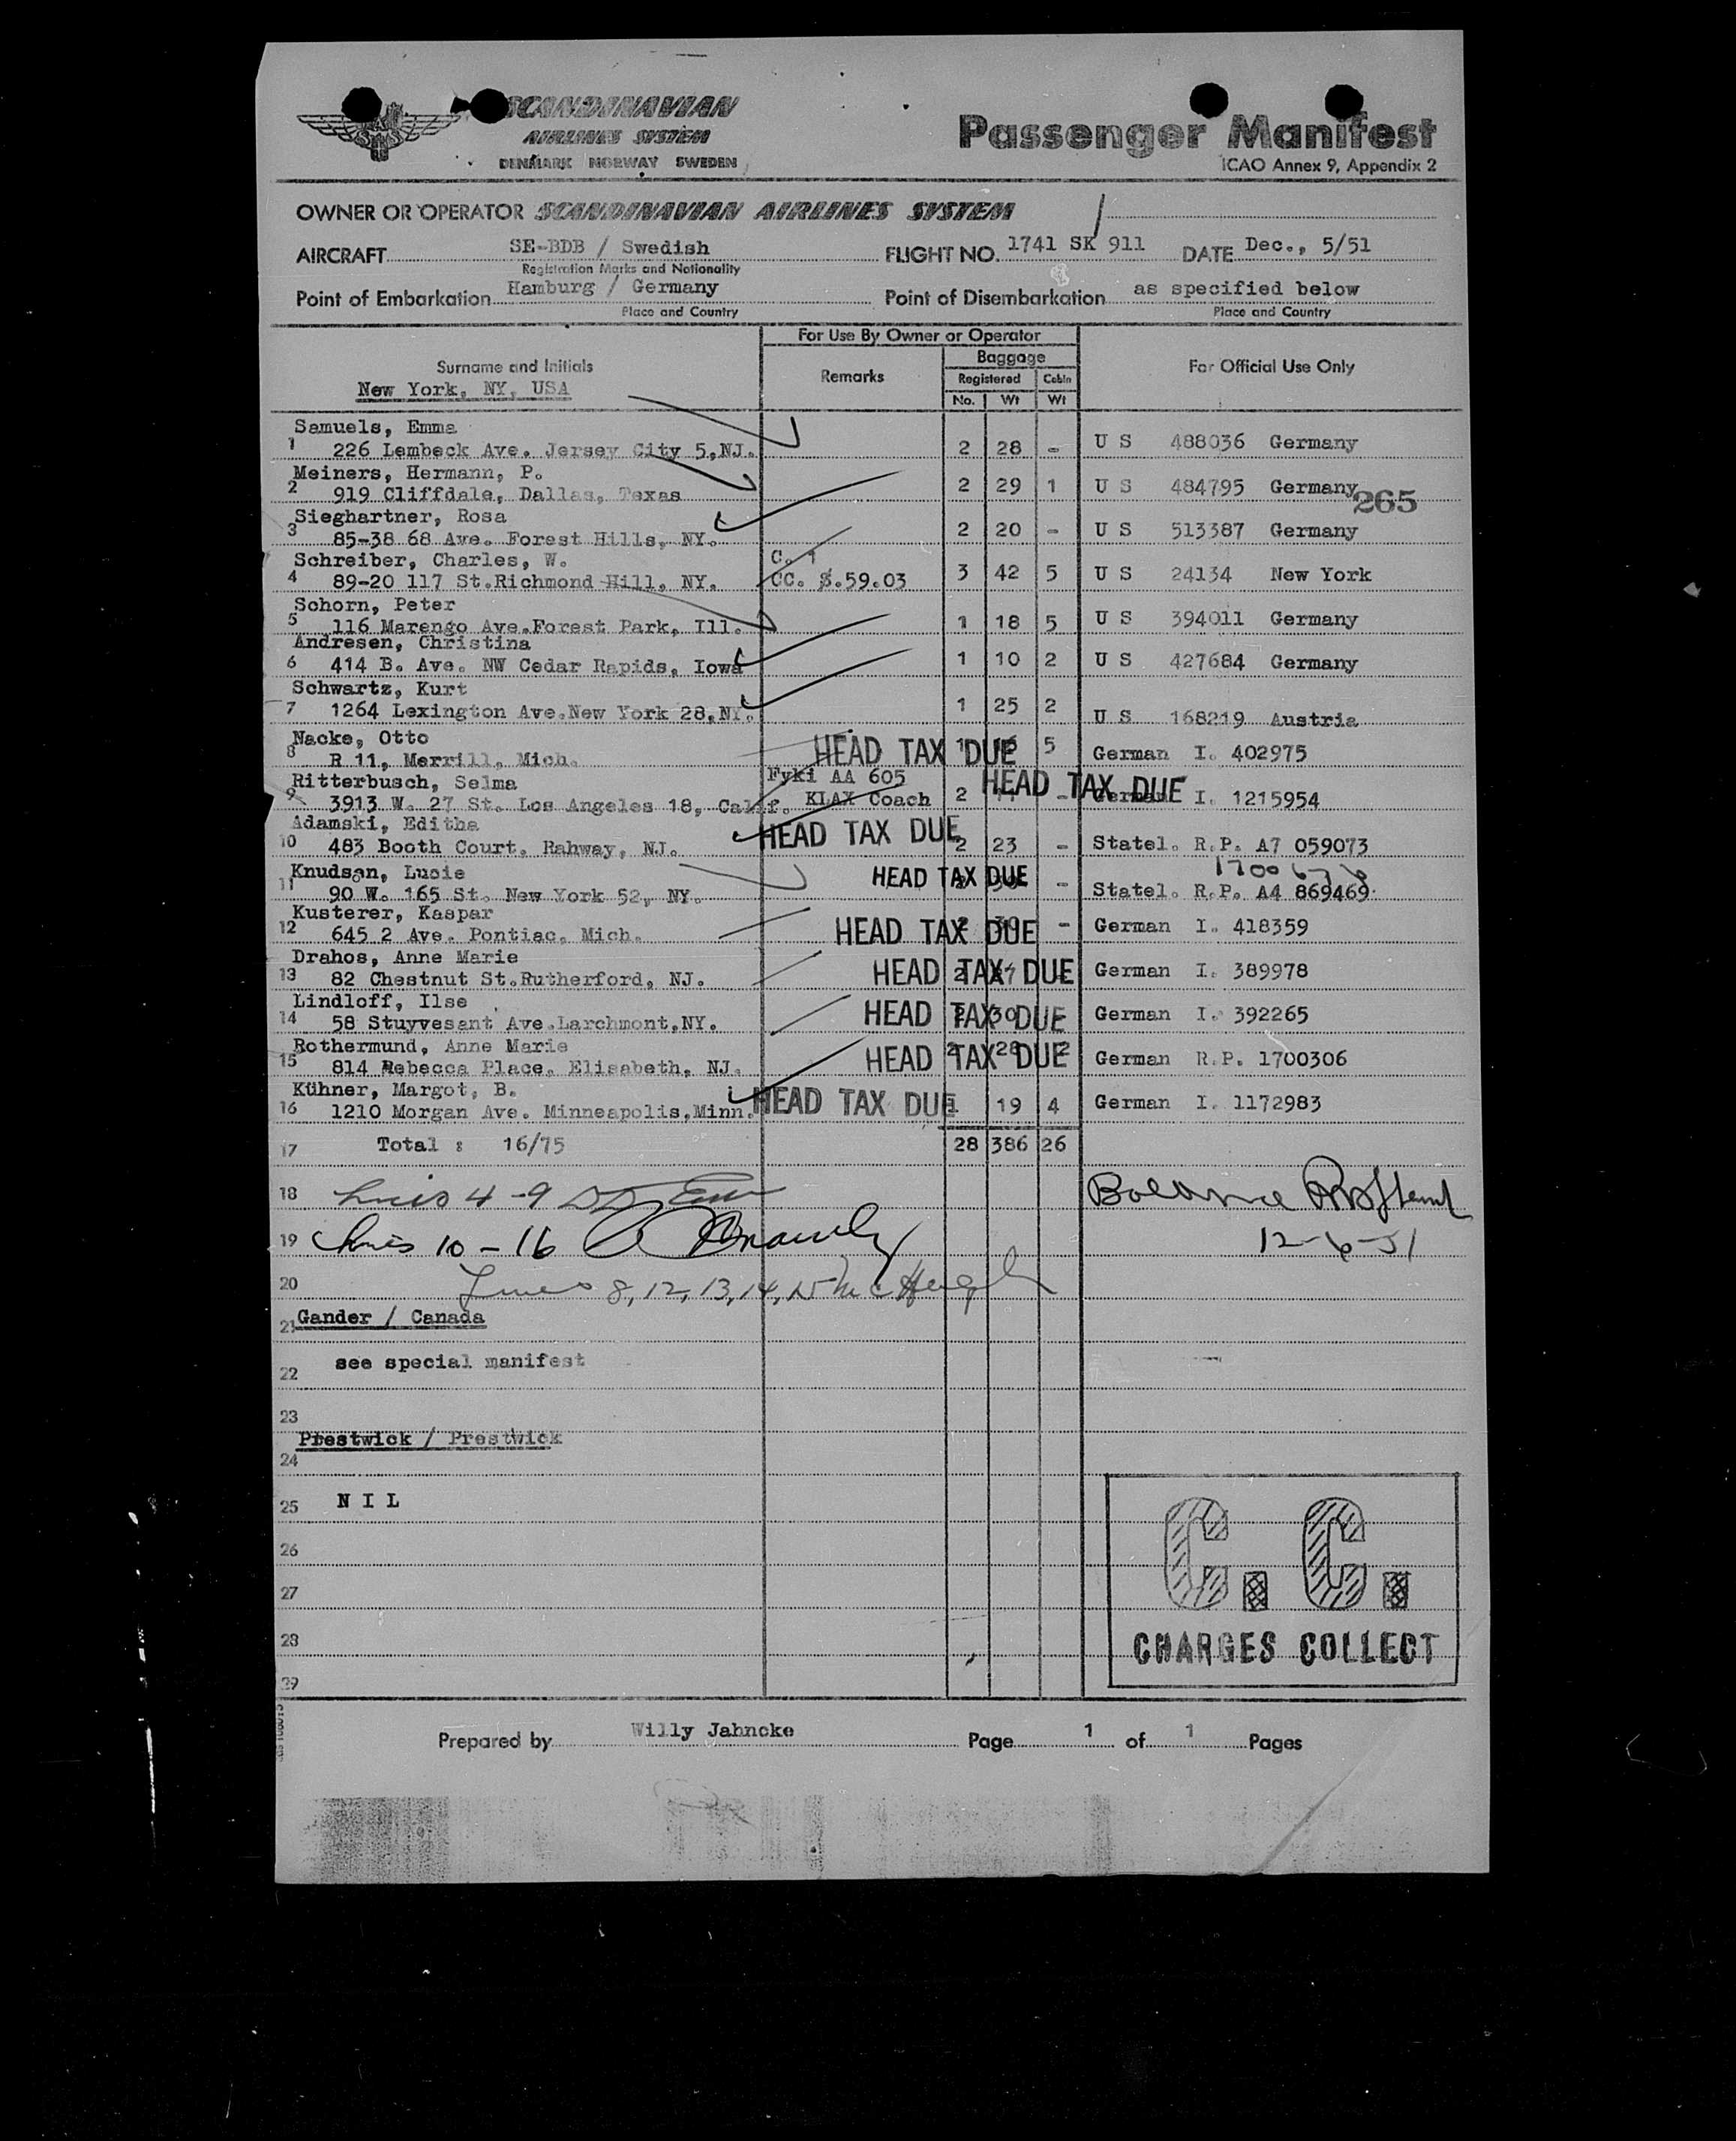 SCANDINAVIAN
AIRLINES SYSTEM
DENMARK NORWAY SWEDEN
Passenger Manifest
ICAO Annex 9, Appendix 2
OWNER OR OPERATOR SCANDINAVIAN AIRLINES SYSTEM
AIRCRAFT SE-BDB / Swedish FLIGHT NO. 1741 SK 911 DATE Dec., 5/51
Registration Marks and Nationality
Point of Embarkation Hamburg / Germany Point of Disembarkation as specified below
Place and Country Place and Country
For Use By Owner or Operator
Surname and Initials Remarks Baggage For Official Use Only
New York, NY, USA Registered Cabin
No. Wt Wt
Samuels, Emma
1 226 Lembeck Ave. Jersey City 5,NJ. 2 28 - U S 488036 Germany
Meiners, Hermann, P.
2 919 Cliffdale, Dallas, Texas 2 29 1 U S 484795 Germany
265
Sieghartner, Rosa
3 85-38 68 Ave. Forest Hills, NY. 2 20 - U S 513387 Germany
Schreiber, Charles, W. C. 1
4 89-20 117 St.Richmond Hill, NY. CC. $.59.03 3 42 5 U S 24134 New York
Schorn, Peter
5 116 Marengo Ave.Forest Park, Ill. 1 18 5 U S 394011 Germany
Andresen, Christina
6 414 B. Ave. NW Cedar Rapids, Iowa 1 10 2 U S 427684 Germany
Schwartz, Kurt
7 1264 Lexington Ave.New York 28,NY. 1 25 2 U S 168219 Austria
Nacke, Otto
8 R 11, Merrill, Mich. HEAD TAX DUE 1 5 German I. 402975
Ritterbusch, Selma Fyki AA 605
9 3913 W. 27 St. Los Angeles 18, Calif. KLAX Coach 2 HEAD TAX DUE - German I. 1215954
Adamski, Editha
10 483 Booth Court. Rahway, NJ. HEAD TAX DUE 2 23 - Statel. R.P. A7 059073
Knudsen, Lucie
11 90 W. 165 St. New York 52, NY. HEAD TAX DUE - Statel. R.P. A4 869469
Kusterer, Kaspar
12 645 2 Ave. Pontiac, Mich. HEAD TAX DUE - German I. 418359
Drahos, Anne Marie
13 82 Chestnut St.Rutherford, NJ. HEAD TAX DUE 2 German I. 389978
Lindloff, Ilse
14 58 Stuyvesant Ave.Larchmont,NY. HEAD TAX DUE 30 German I. 392265
Rothermund, Anne Marie
15 814 Rebecca Place, Elisabeth, NJ. HEAD TAX DUE 2 28 2 German R.P. 1700306
Kühner, Margot, B.
16 1210 Morgan Ave. Minneapolis,Minn. HEAD TAX DUE 1 19 4 German I. 1172983
17 Total : 16/75 28 386 26
18 Lines 4-9 Balance
19 Lines 10-16 12-6-51
20 Lines 8, 12, 13, 14, 15
21 Gander / Canada
22 see special manifest
23
Prestwick / Prestwick
24
25 N I L
26
27
28
29
C. C.
CHARGES COLLECT
Prepared by Willy Jahncke Page 1 of 1 Pages